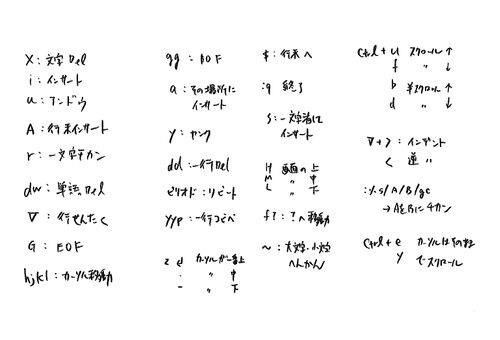 X:文字 Del
i:インサート
u:アンドゥ
A:行末インサート
r:一文字チカン
dw:単語 Del
∇:行せんたく
G:EOF
hjkl:カーソル移動
gg:BOF
a:その場所に
インサート
y:ヤンク
dd:一行 Del
ピリオド:リピート
yyp:一行コピペ
z d カーソルが一番上
. 〃 中
- 〃 下
$:行末へ
:q 終了
s:一文字消して
インサート
H 画面の上
M 〃 中
L 〃 下
f?:?へ移動
~:大文字・小文字
へんかん
Ctrl+u スクロール↑
f 〃 ↓
b 半スクロール↑
d 〃 ↓
∇+>:インデント
< 逆 〃
:%s/A/B/gc
→AをBにチカン
Ctrl+e カーソルはそのまま
y でスクロール